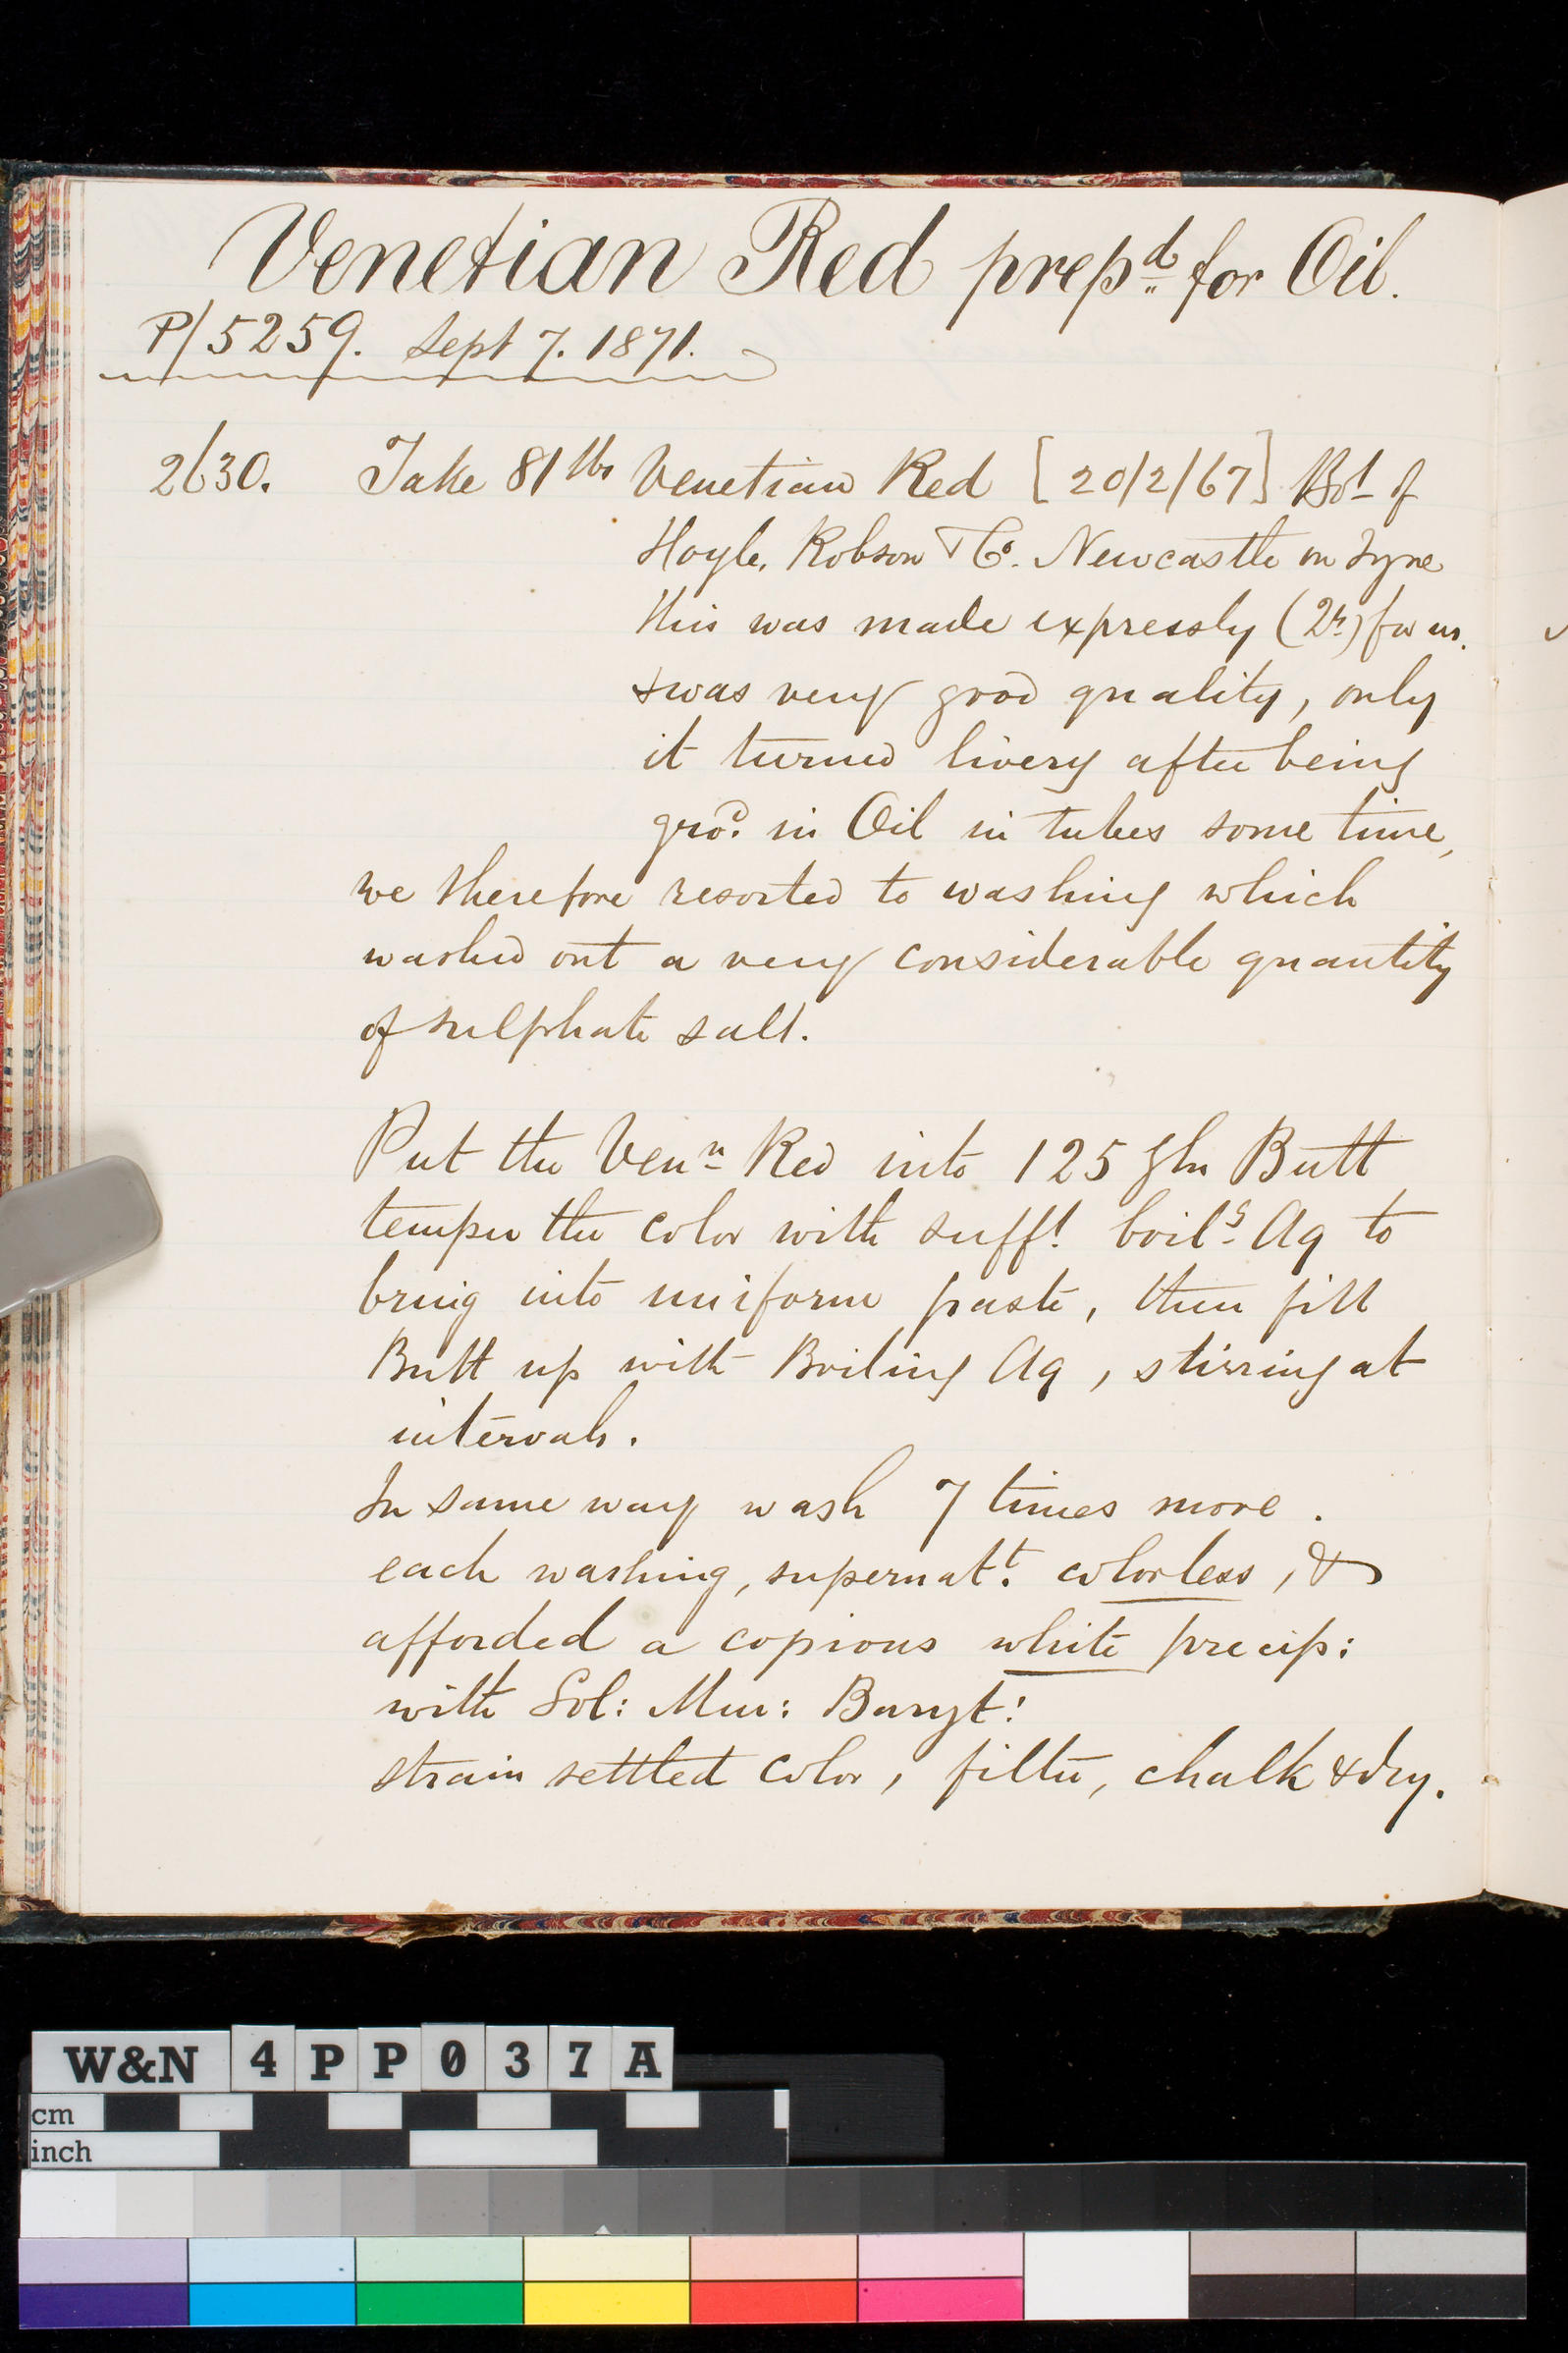 Venetian Red prepd. for Oil.
P/5259. Sept 7. 1871.
2630. Take 81 lbs Venetian Red [20/2/67] Bot of
Hoyle, Robson & Co. Newcastle on Tyne
this was made expressly for us.
& was very good quality, only
it turned livery after being
grod. in Oil in tubes some time,
we therefore resorted to washing which
washed out a very considerable quantity
of sulphate salt.
Put the Venn Red into 125 gln Butt
temper the color with sufft. boilg Aq to
bring into uniform paste, then fill
Butt up with Boiling Aq, stirring at
intervals.
In same way wash 7 times more.
each washing, supernatt. colorless, &
afforded a copious white precip:
with Sol: Mur: Baryt:
strain settled color, filter, chalk & dry.
W&N 4PP037A
cm
inch